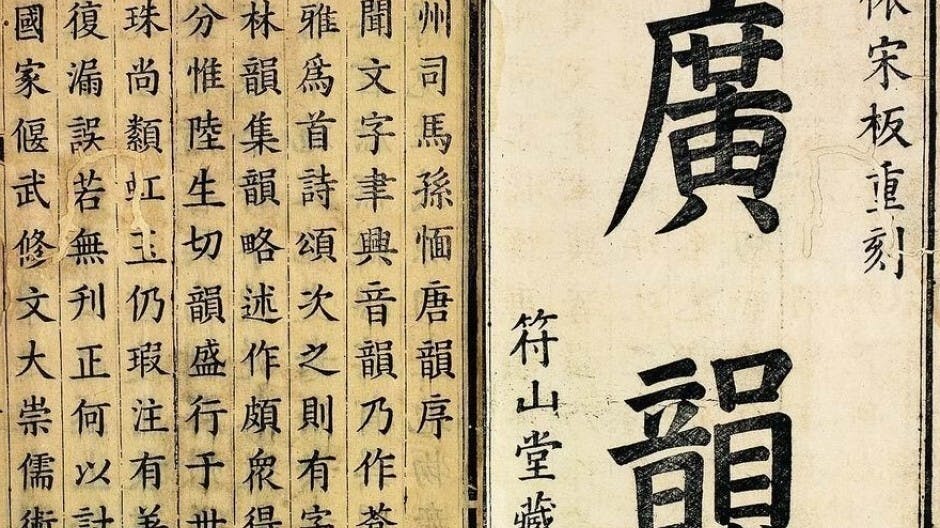 依宋板重刻
廣韻
符山堂藏
州司馬孫愐唐韻序
聞文字聿興音韻乃作蒼
雅爲首詩頌次之則有字
林韻集韻略述作頗衆得
分惟陸生切韻盛行于世
珠尚纇虹玉仍瑕注有差
復漏誤若無刊正何以討
國家偃武修文大崇儒術